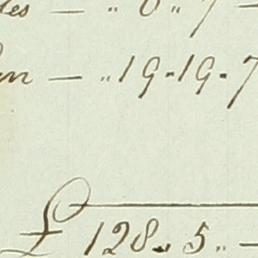 des — " 0 " 7 —
on — " 19 - 19 - 7
£ 128 . 5 . . —